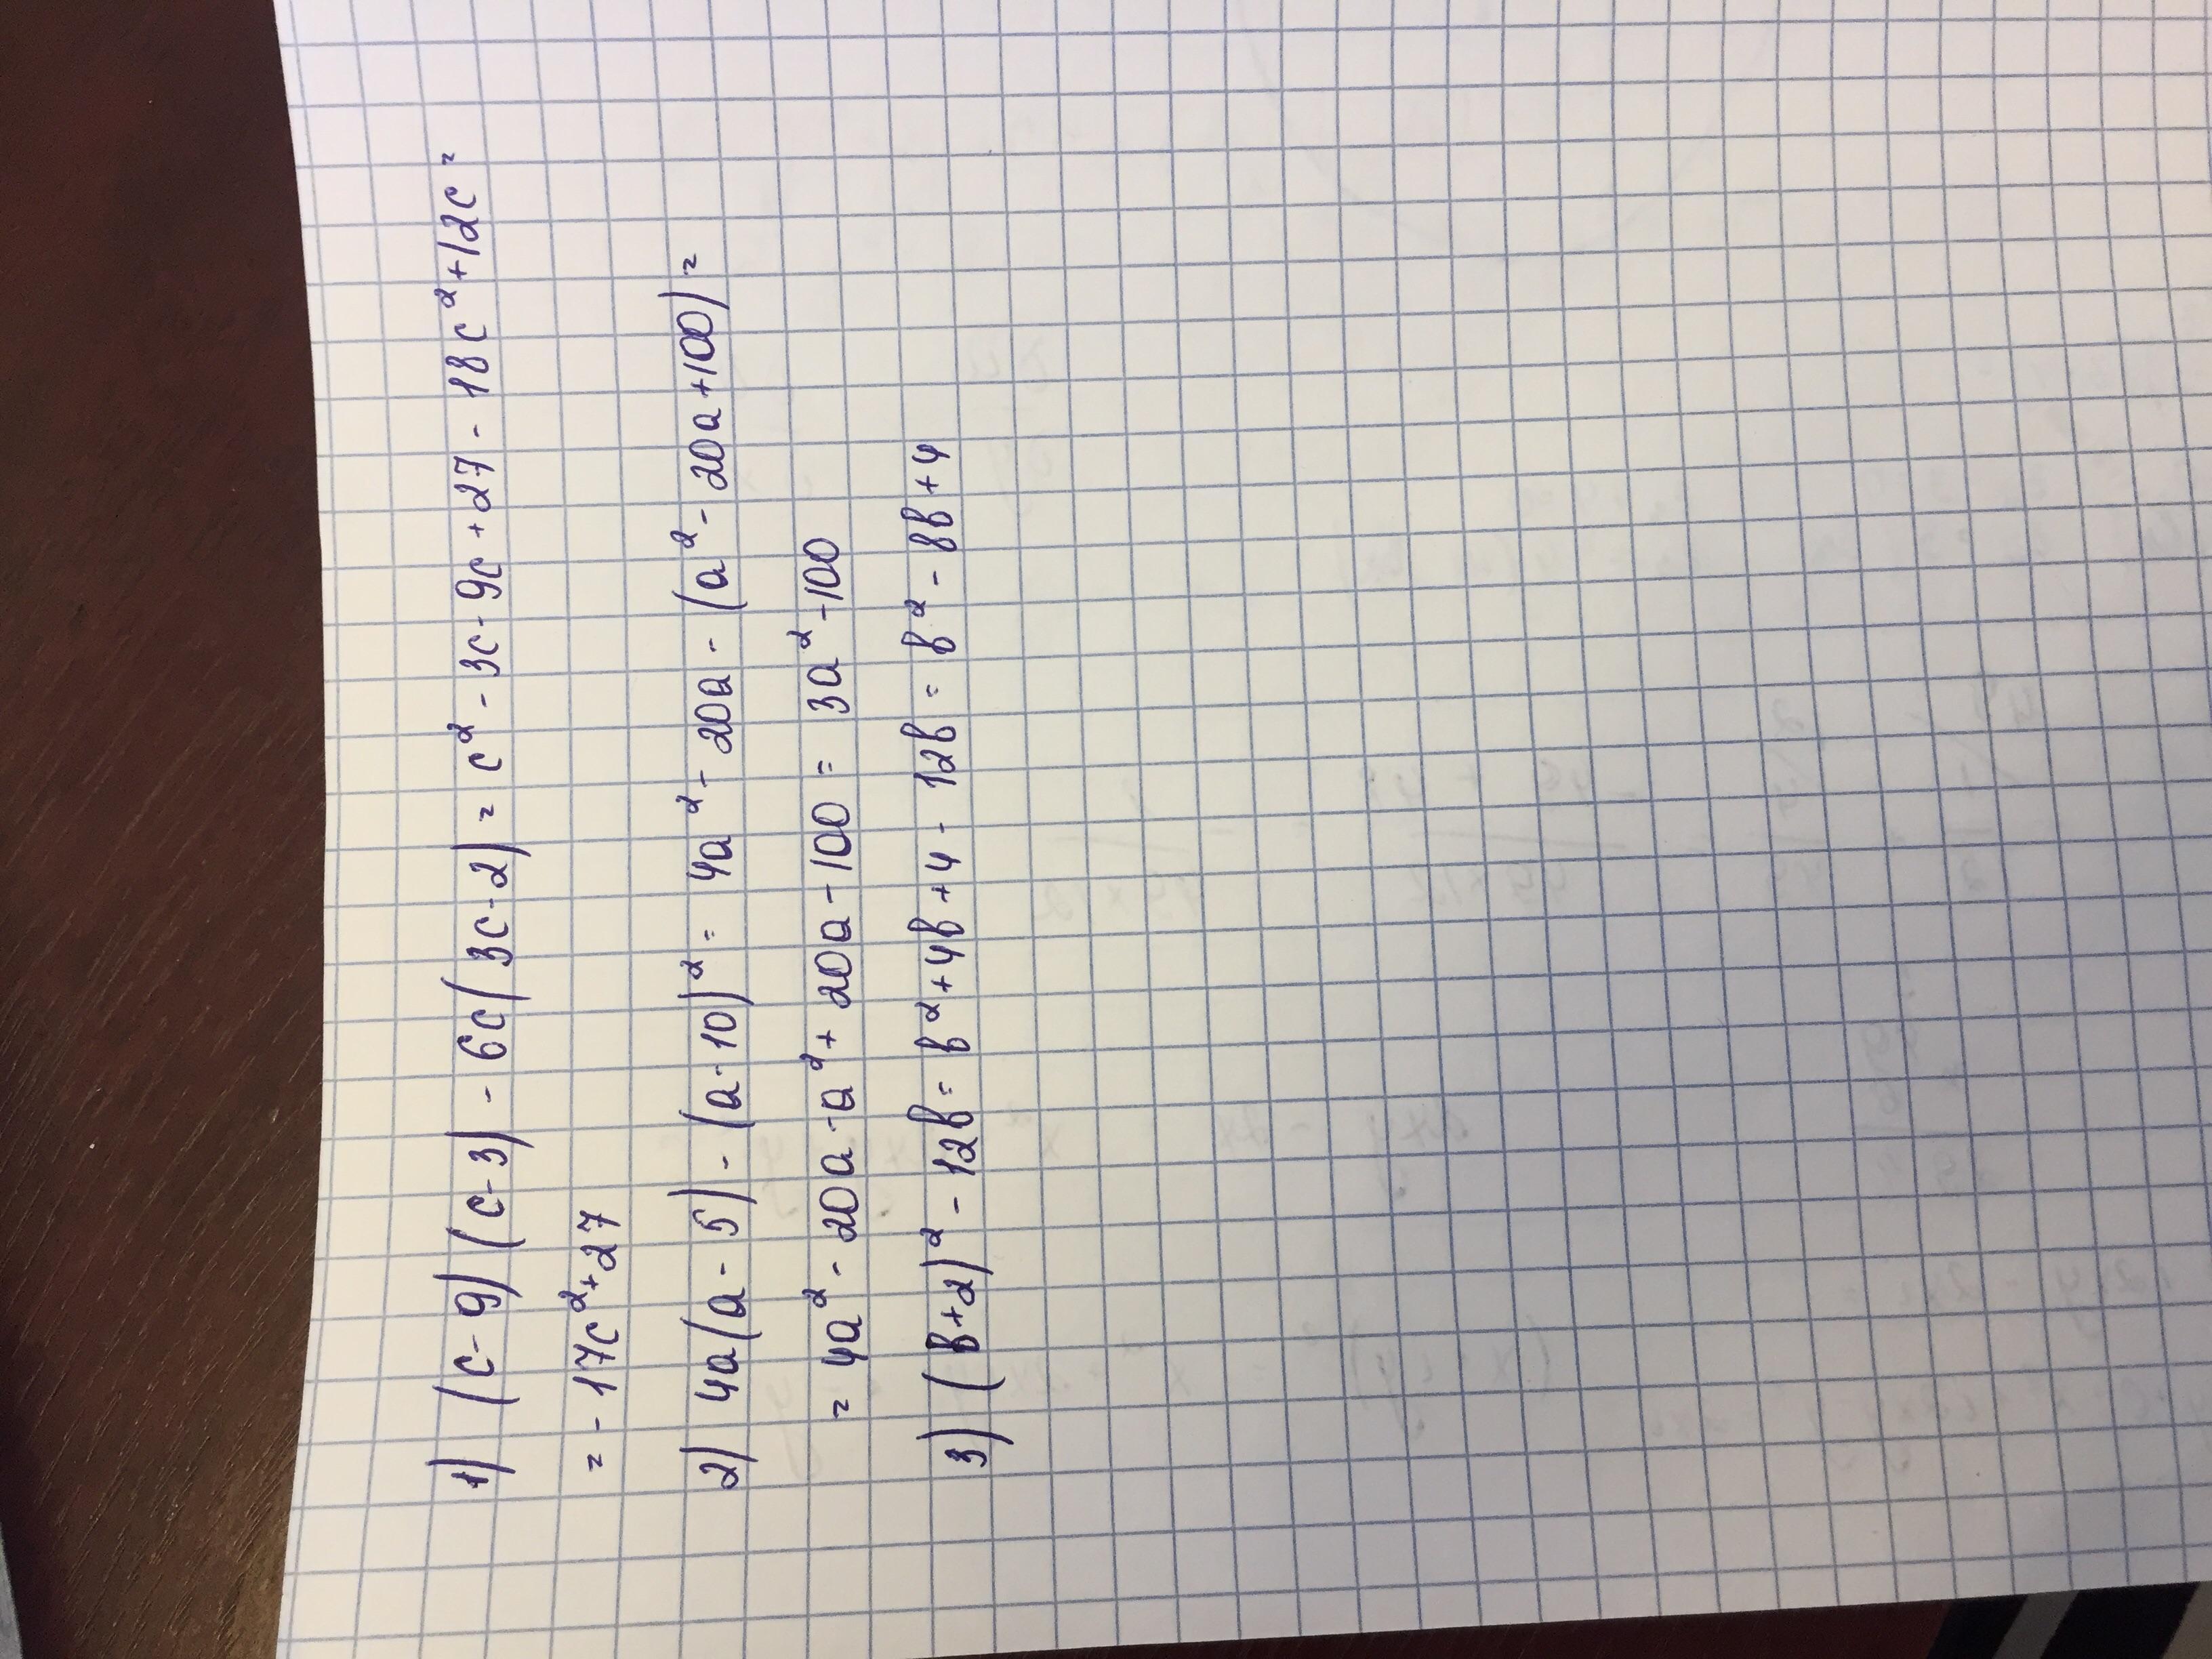 1) (c-9)(c-3) - 6c(3c-2) = c² - 3c - 9c + 27 - 18c² + 12c =
= -17c² + 27
2) 4a(a-5) - (a-10)² = 4a² - 20a - (a² - 20a + 100) =
= 4a² - 20a - a² + 20a - 100 = 3a² - 100
3) (в+2)² - 12в = в² + 4в + 4 - 12в = в² - 8в + 4